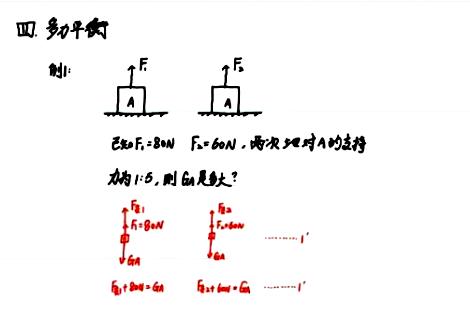 四. 多力平衡
例1:
F₁ F₂
A A
已知F₁=80N F₂=60N，两次地对A的支持
力为1:5，则GA是多大？
F支1 F支2
F₁=80N F₂=60N
GA GA ……1′
F支1+80N=GA F支2+60N=GA ……1′